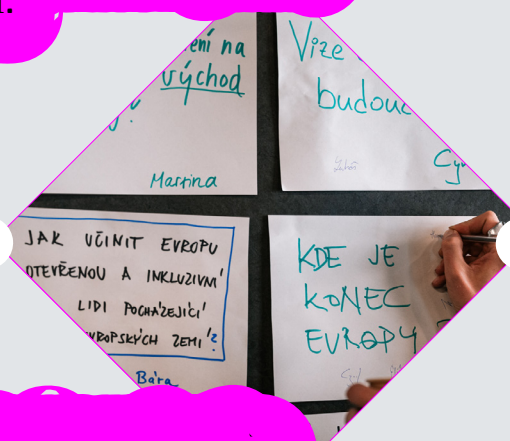 ení na
východ
Martina
Vize
budouc
Cyr
JAK UČINIT EVROPU
OTEVŘENOU A INKLUZIVNÍ
LIDI POCHÁZEJÍCÍ
VROPSKÝCH ZEMÍ?
Bára
KDE JE
KONEC
EVROPY